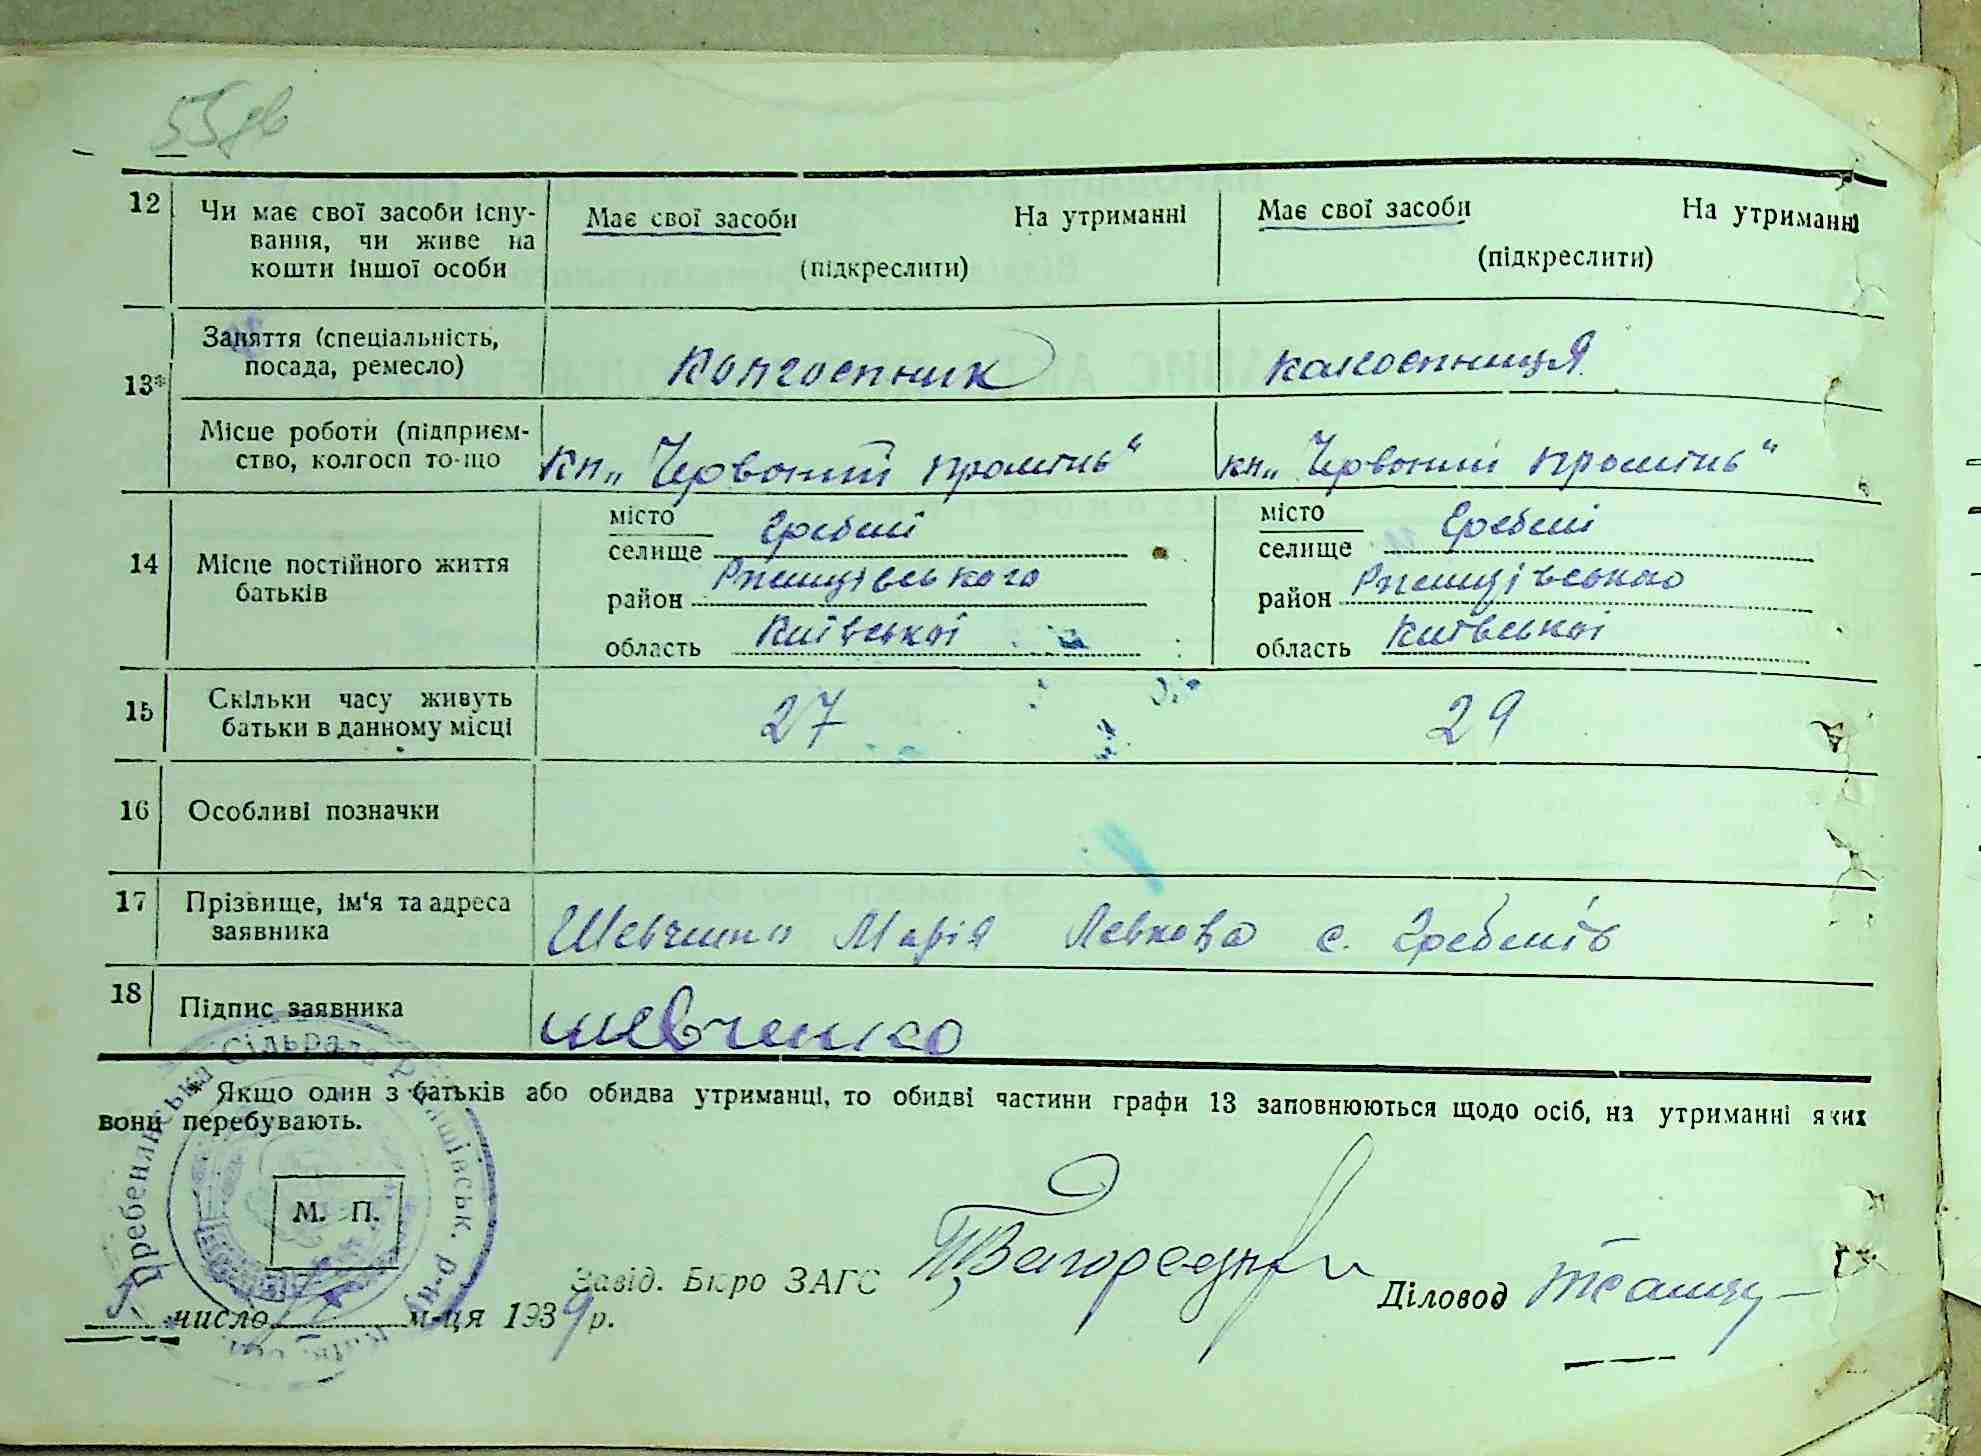 55зв
12 Чи має свої засоби існу- Має свої засоби На утриманні Має свої засоби На утриманні
вання, чи живе на
кошти іншої особи (підкреслити) (підкреслити)
Заняття (спеціальність,
посада, ремесло) Колгоспник колгоспниця
13*
Місце роботи (підприєм-
ство, колгосп то-що кп „Червоний промінь“ кп „Червоний промінь“
місто Гребені місто Гребені
селище селище
14 Місце постійного життя
батьків
район Ржищівського район Ржищівського
область Київської область Київської
15 Скільки часу живуть
батьки в данному місці 27 29
16 Особливі позначки
17 Прізвище, ім'я та адреса
заявника Шевченко Марія Левкова с. Гребенів
18 Підпис заявника шевченко
* Якщо один з батьків або обидва утриманці, то обидві частини графи 13 заповнюються щодо осіб, на утриманні яких
вони перебувають.
Гребенянська Сільрада Ржищівськ. р-ну Київ. обл.
М. П.
Завід. Бюро ЗАГС Діловод
число м-ця 1939 р.